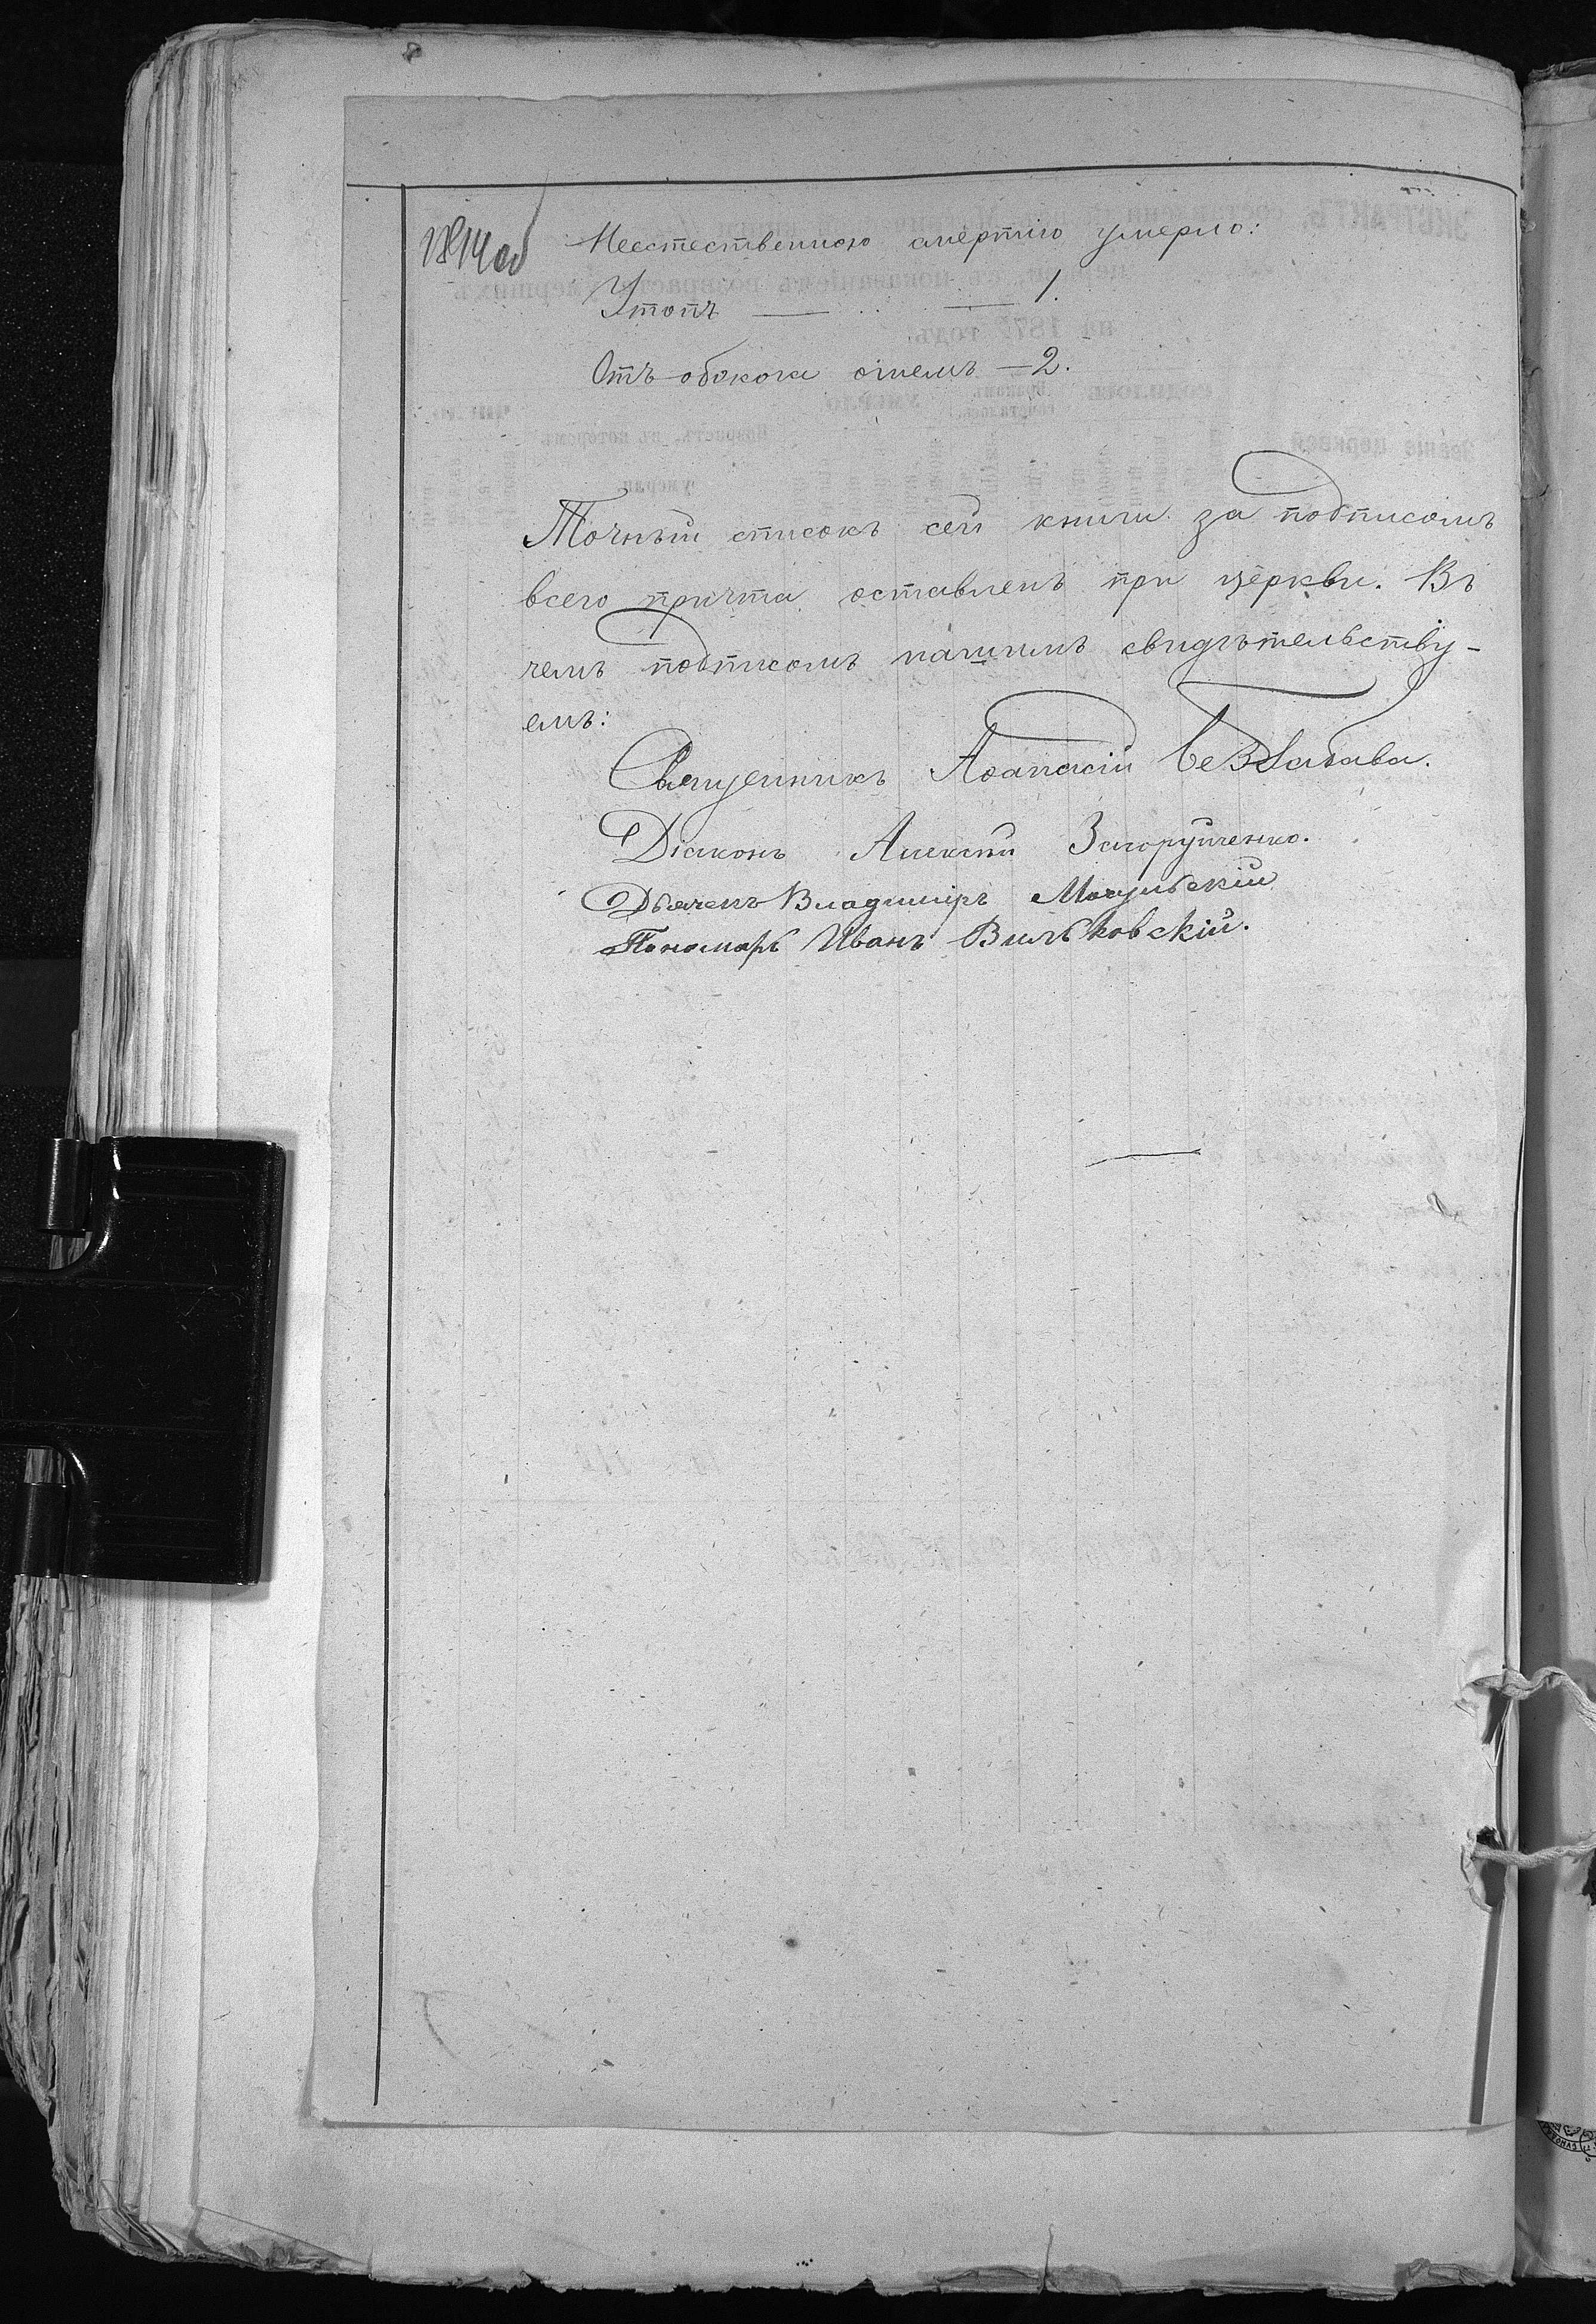 1814об
Неестественною смертію умерло:
Утопъ — 1.
Отъ обжога огнемъ — 2.
Точный списокъ сей книги за подписомъ
всего причта оставленъ при церкви. Въ
чемъ подписомъ нашимъ свидѣтельству-
емъ:
Священникъ Аѳанасій Беззабава.
Діаконъ Алексѣй Загоруйченко.
Дьячекъ Владиміръ
Пономарь Иванъ Вильковскій.